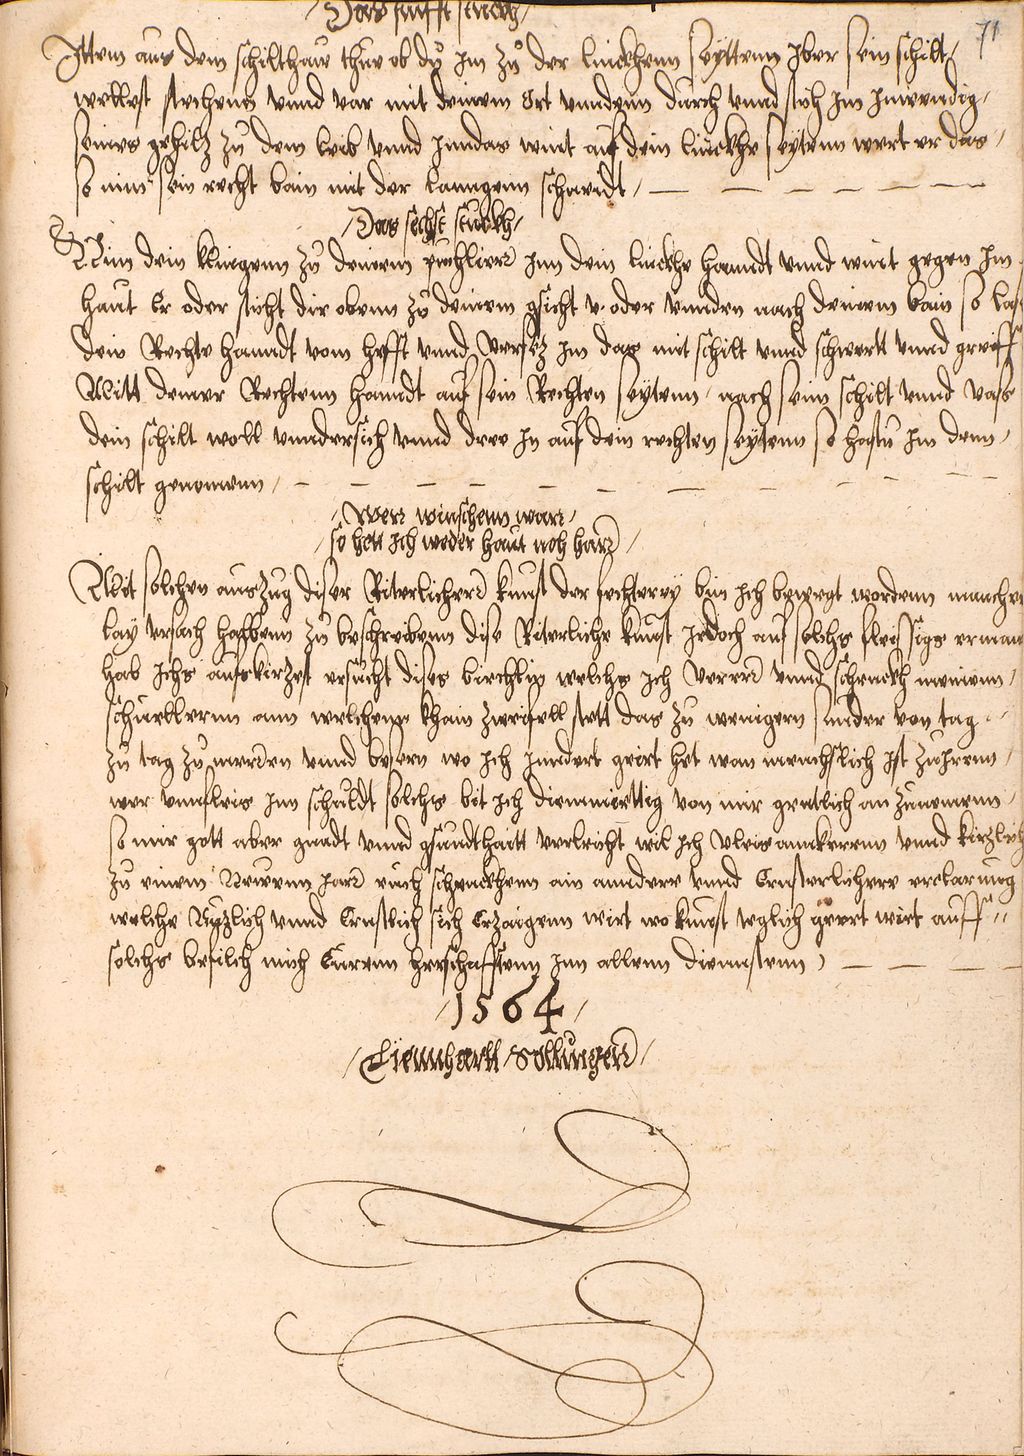 Das fufft stuckh
71
Ittem aus dem schilthaw thue ob du im zu der linckhenn seyttenn Iber sein schilt
wellest stechenn vnnd var mit deinem Ort vnndenn durch vnnd stich im Inwendig
seines schiltz zu dem leib vnnd Inndas wint auf dein linckhe seytenn wert er das
so nim sein recht bain mit der lanngenn schneidt
Das sechst stuckh
Nim dein klingenn zu deinem puchlier Inn dein linckhe hanndt vnnd wint gegen Im
haut Er oder sticht dir obenn zu deinem gsicht oder vnnden nach deinem bain so las
dein Rechte hanndt vom hefft vnnd versetz im das mit schilt vnnd schwertt vnnd greiff
Mitt deiner Rechtenn hanndt auf sein Rechten seytenn nach seim schilt vnnd vass
dein schilt woll vnndersich vnnd dree in auf dein rechten seytenn so hastu im denn
schilt genomenn
Wen winschenn war
so hett ich weder haut noch har
Mit solchen auszug diser Riterlicher kunst der fechterey bin ich bewegt wordenn mancher
lay vrsach halbenn zu beschreibenn dise Riterliche kunst Jedoch auf solchs fleissigs erman
hab ichs aufskirzest ersucht dises biechlin welchs ich verer vnnd schenckh meinenn
schuellerenn ann welchenn khain zweifell stett das zu wenigern sunder von tag
zu tag zu merren vnnd bessern wo ich Inndert geirt het wan menschlich ist zu Irrenn
wer vnnfleis Inn schuldt solchs bit ich diemmiettig von mir gentlich an zunemenn
so mir gott aber gnadt vnnd gsundthaitt verleicht wil ich vleis annkerenn vnnd kirzlich
zu einem Newenn Jar eich schenckhenn ain anndere vnnd Ernsterlichere erclarung
welche Nutzlich vnnd Ernstlich sich Erzaigenn wirt wo kunst teglich gmert wirt auff
solchs befilch mich Eurenn herschafftenn Inn allenn dienstenn
1564
Lienhartt Sollinger